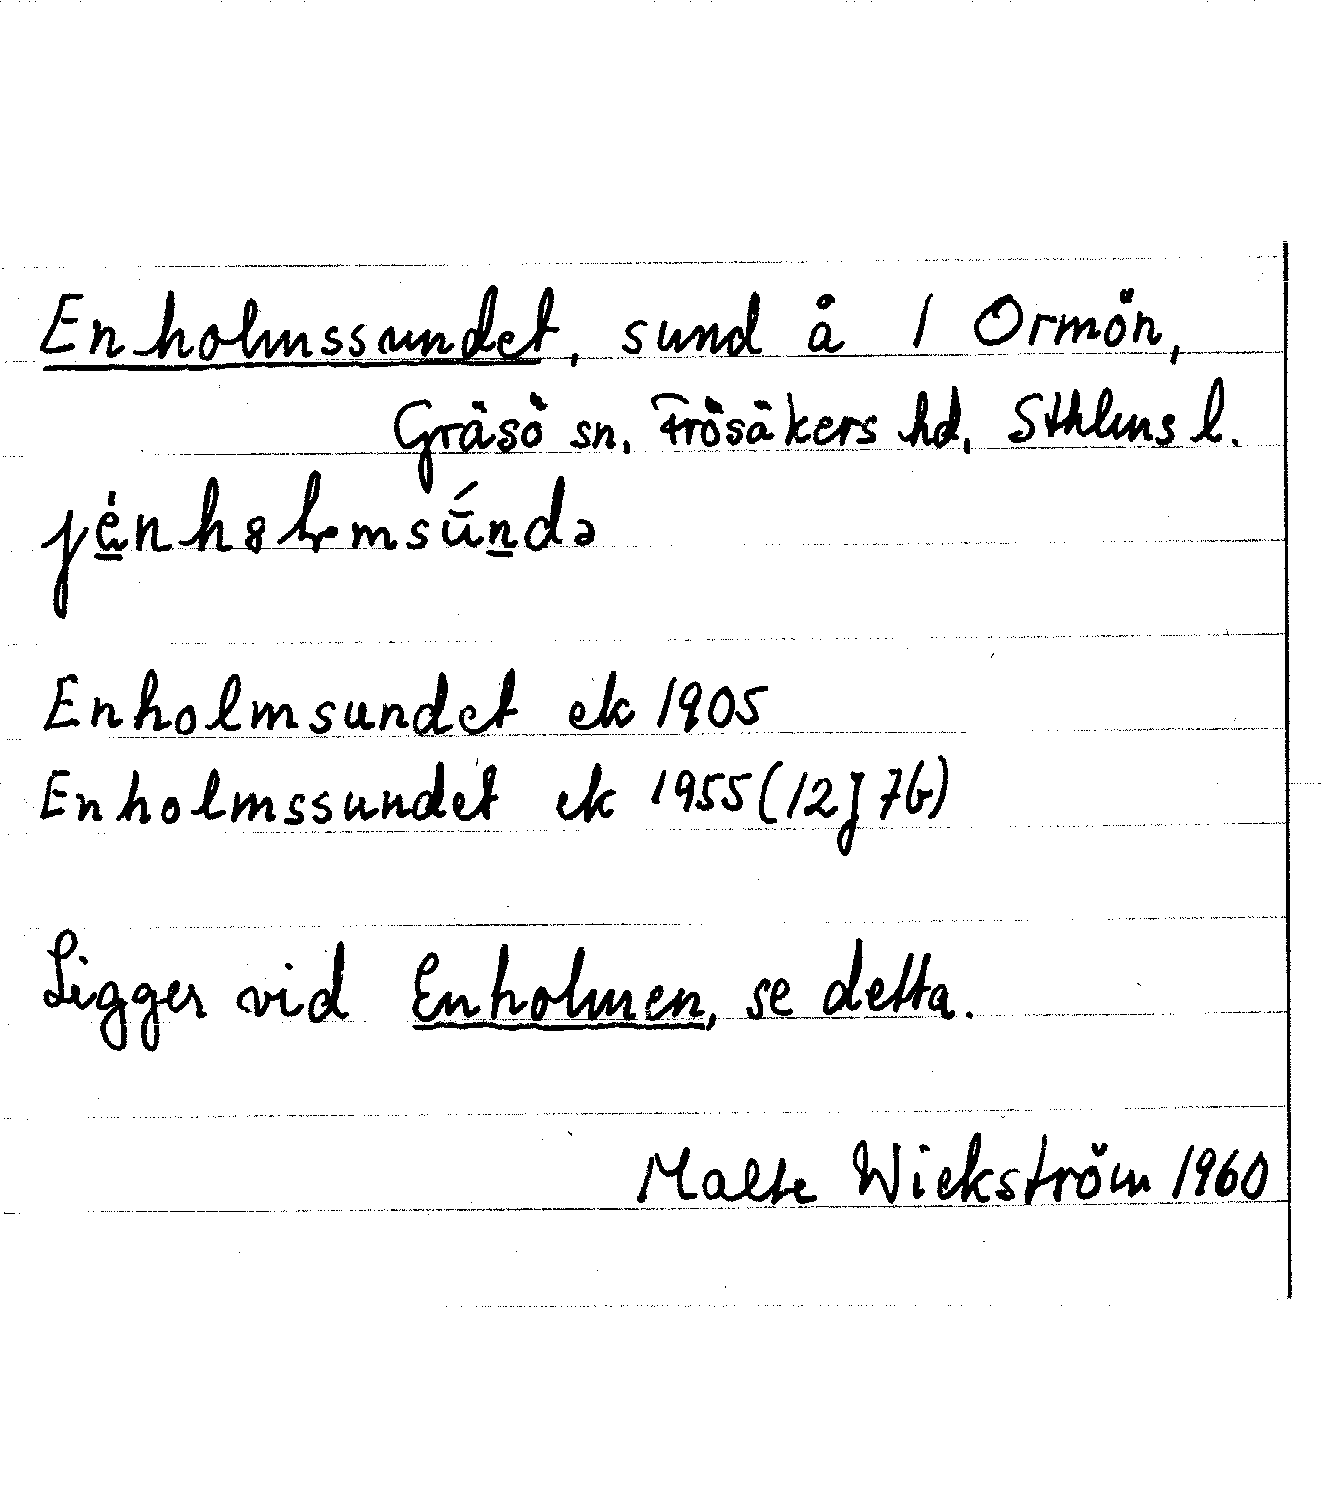 Enholmssundet, sund å 1 Ormön,
Gräsö sn, Frösåkers hd, Sthlms l.
Enholmsundet ek 1905
Enholmssundet ek 1955 (12J 7b)
Ligger vid Enholmen, se detta.
Malte Wickström 1960